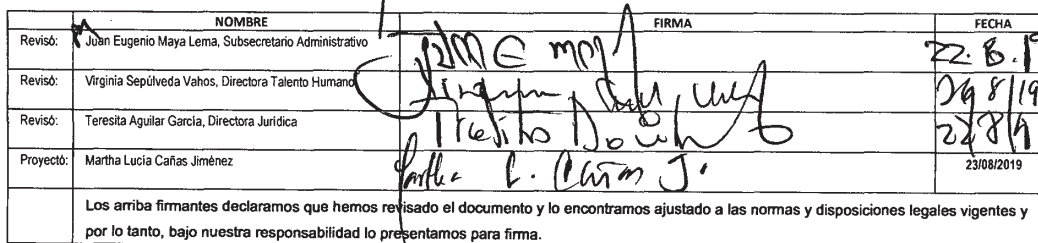 NOMBRE FIRMA FECHA
Revisó: Juan Eugenio Maya Lema, Subsecretario Administrativo
Revisó: Virginia Sepúlveda Vahos, Directora Talento Humano
Revisó: Teresita Aguilar García, Directora Jurídica
Proyectó: Martha Lucía Cañas Jiménez Martha L. Cañas J. 23/08/2019
Los arriba firmantes declaramos que hemos revisado el documento y lo encontramos ajustado a las normas y disposiciones legales vigentes y
por lo tanto, bajo nuestra responsabilidad lo presentamos para firma.